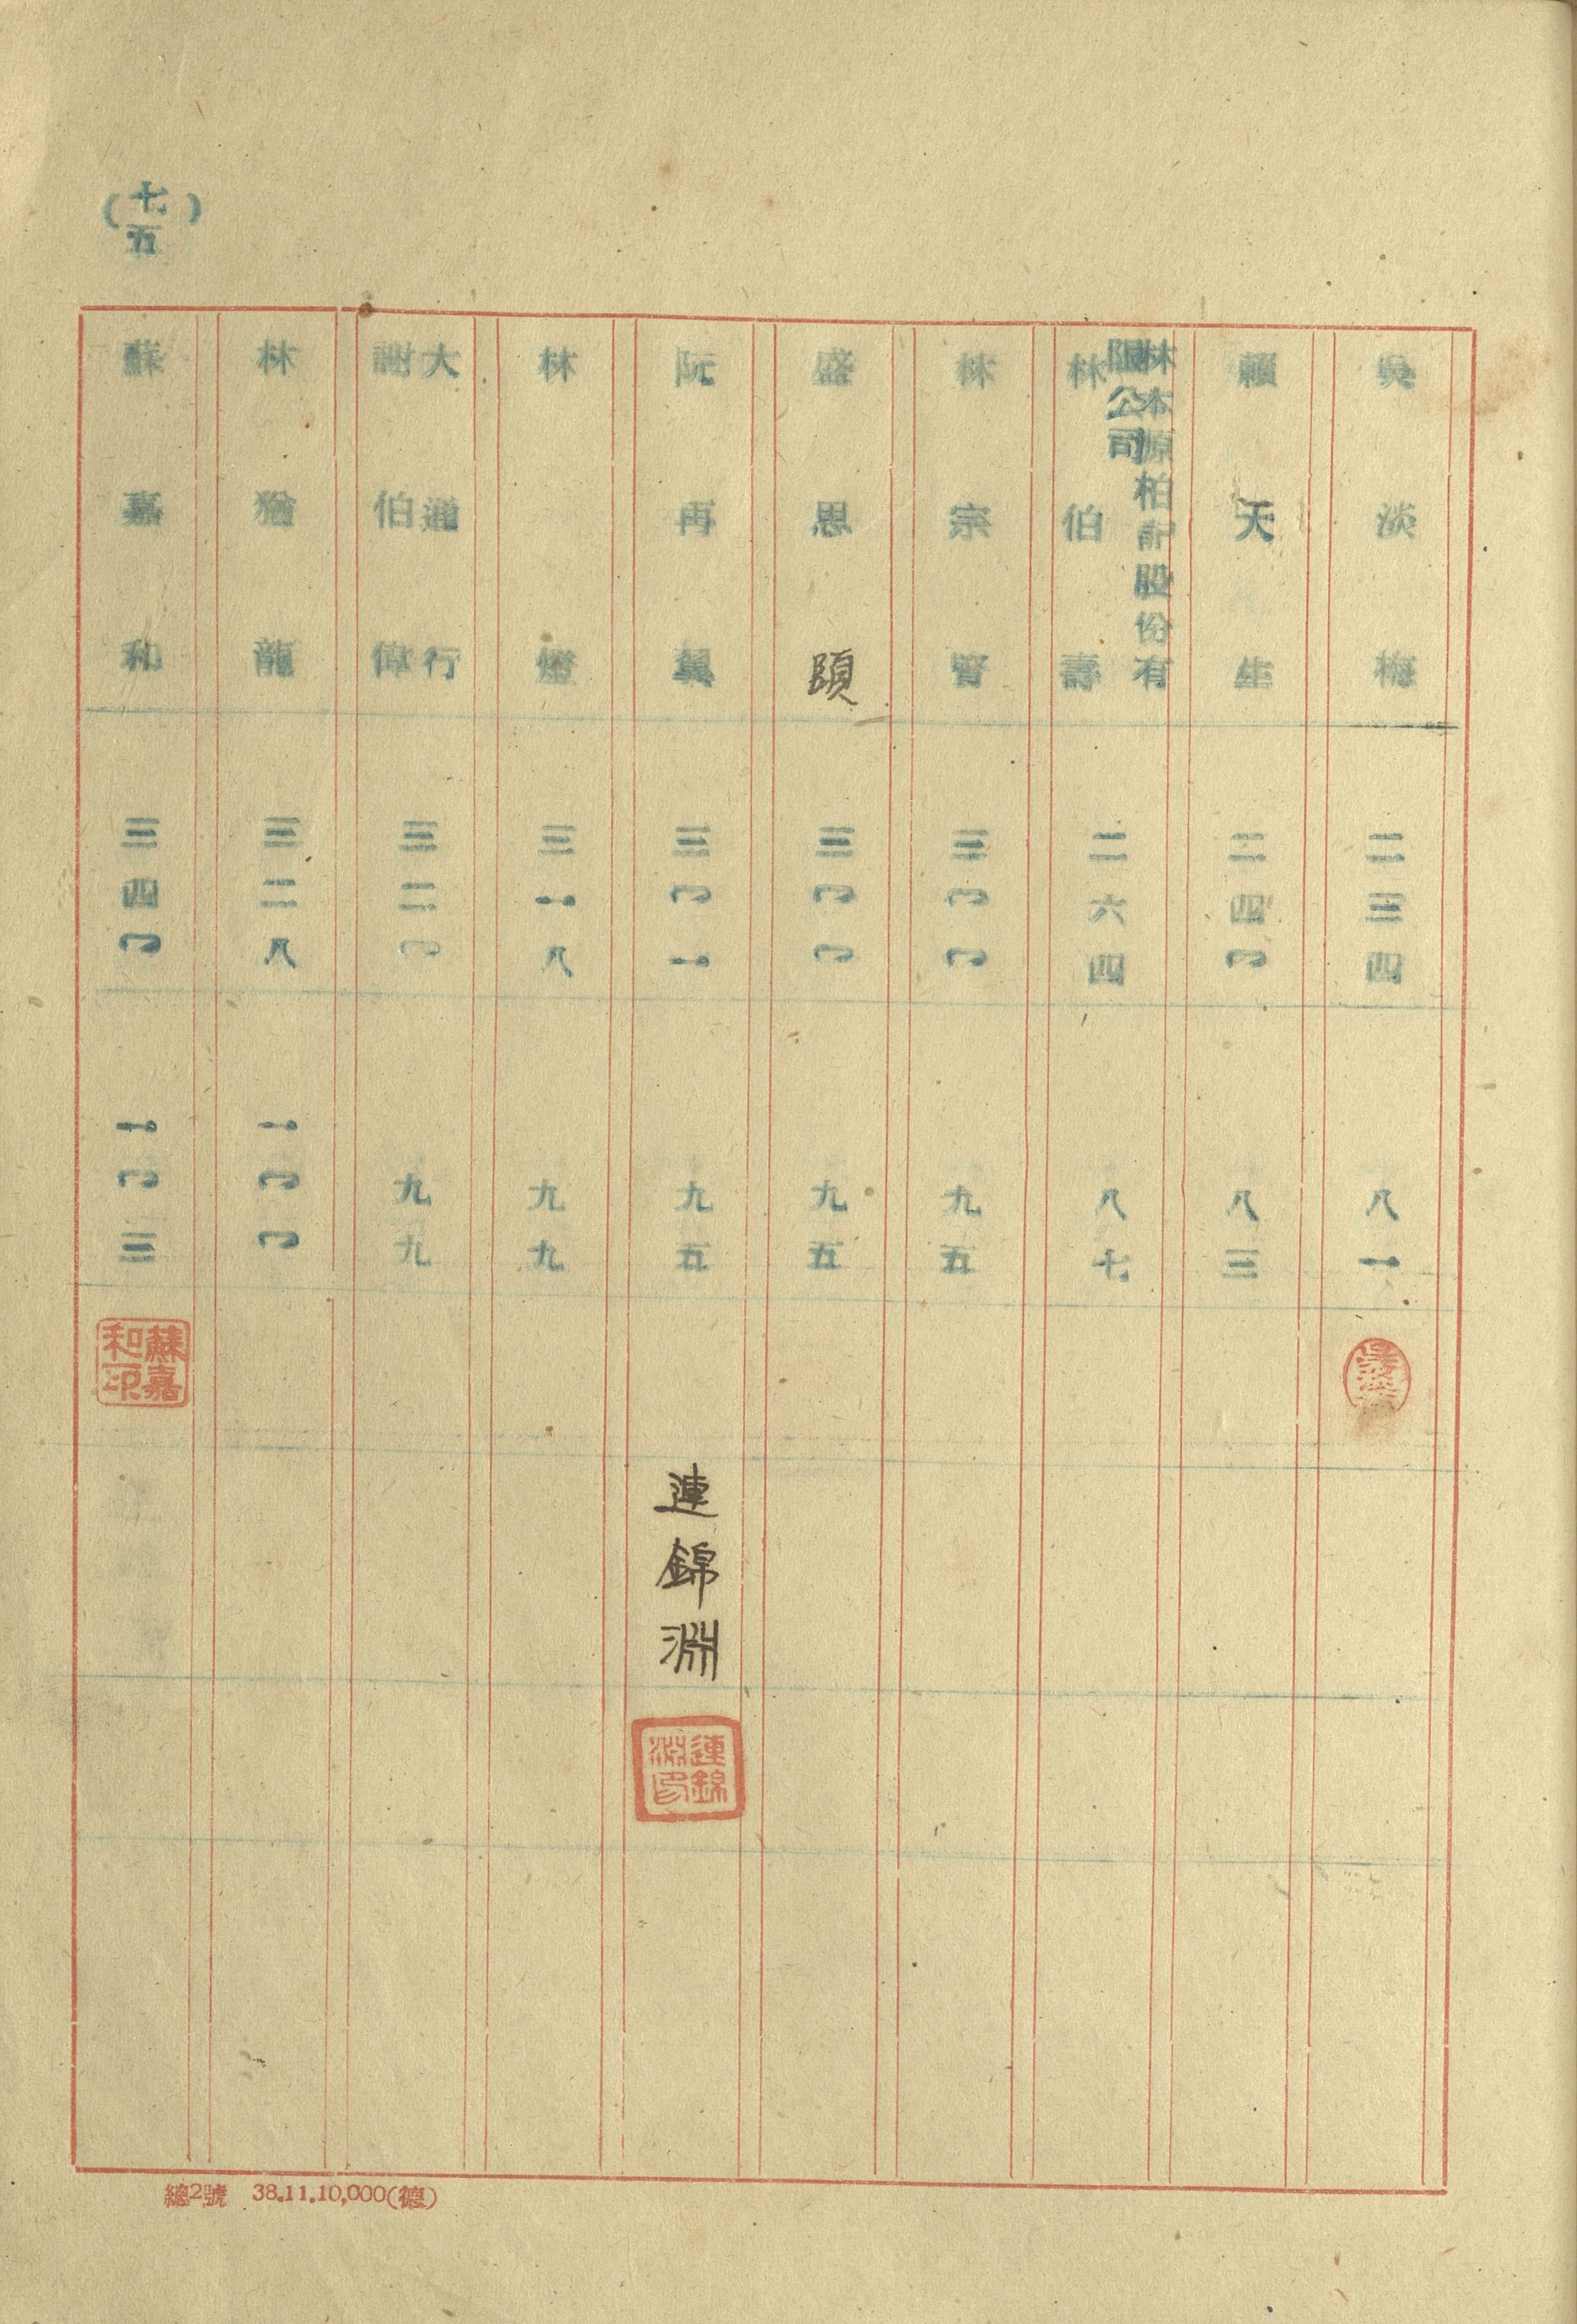 吳淡梅 二三四 八一 吳淡梅
賴天生 二四〇 八三
林本源柏記股份有
限公司
林伯壽 二六四 八七
林宗賢 三〇〇 九五
盛恩頤 三〇〇 九五
阮再 三〇一 九五 連錦淵 連錦淵印
林燈 三一八 九九
大通行
謝伯偉 三二〇 九九
林猶龍 三二八 一〇〇
蘇嘉和 三四〇 一〇三 蘇嘉和印
(七五)
總2號 38.11.10,000(德)